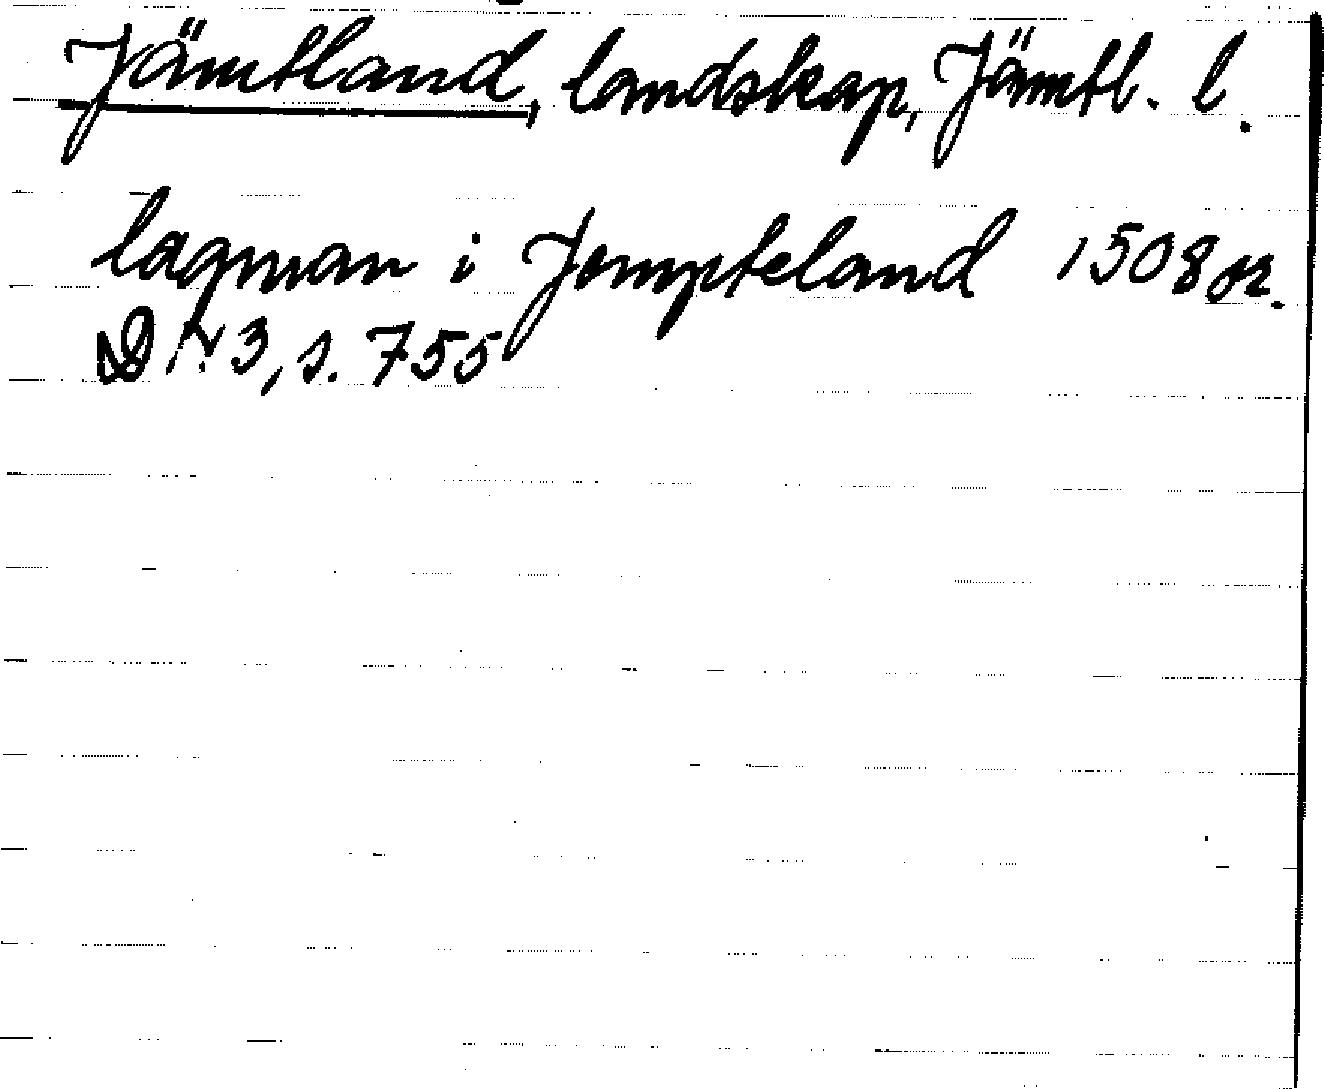 Jämtland, landskap, Jämtl. l.
lagman i Jompteland 1508 or.
DN 3, s. 755